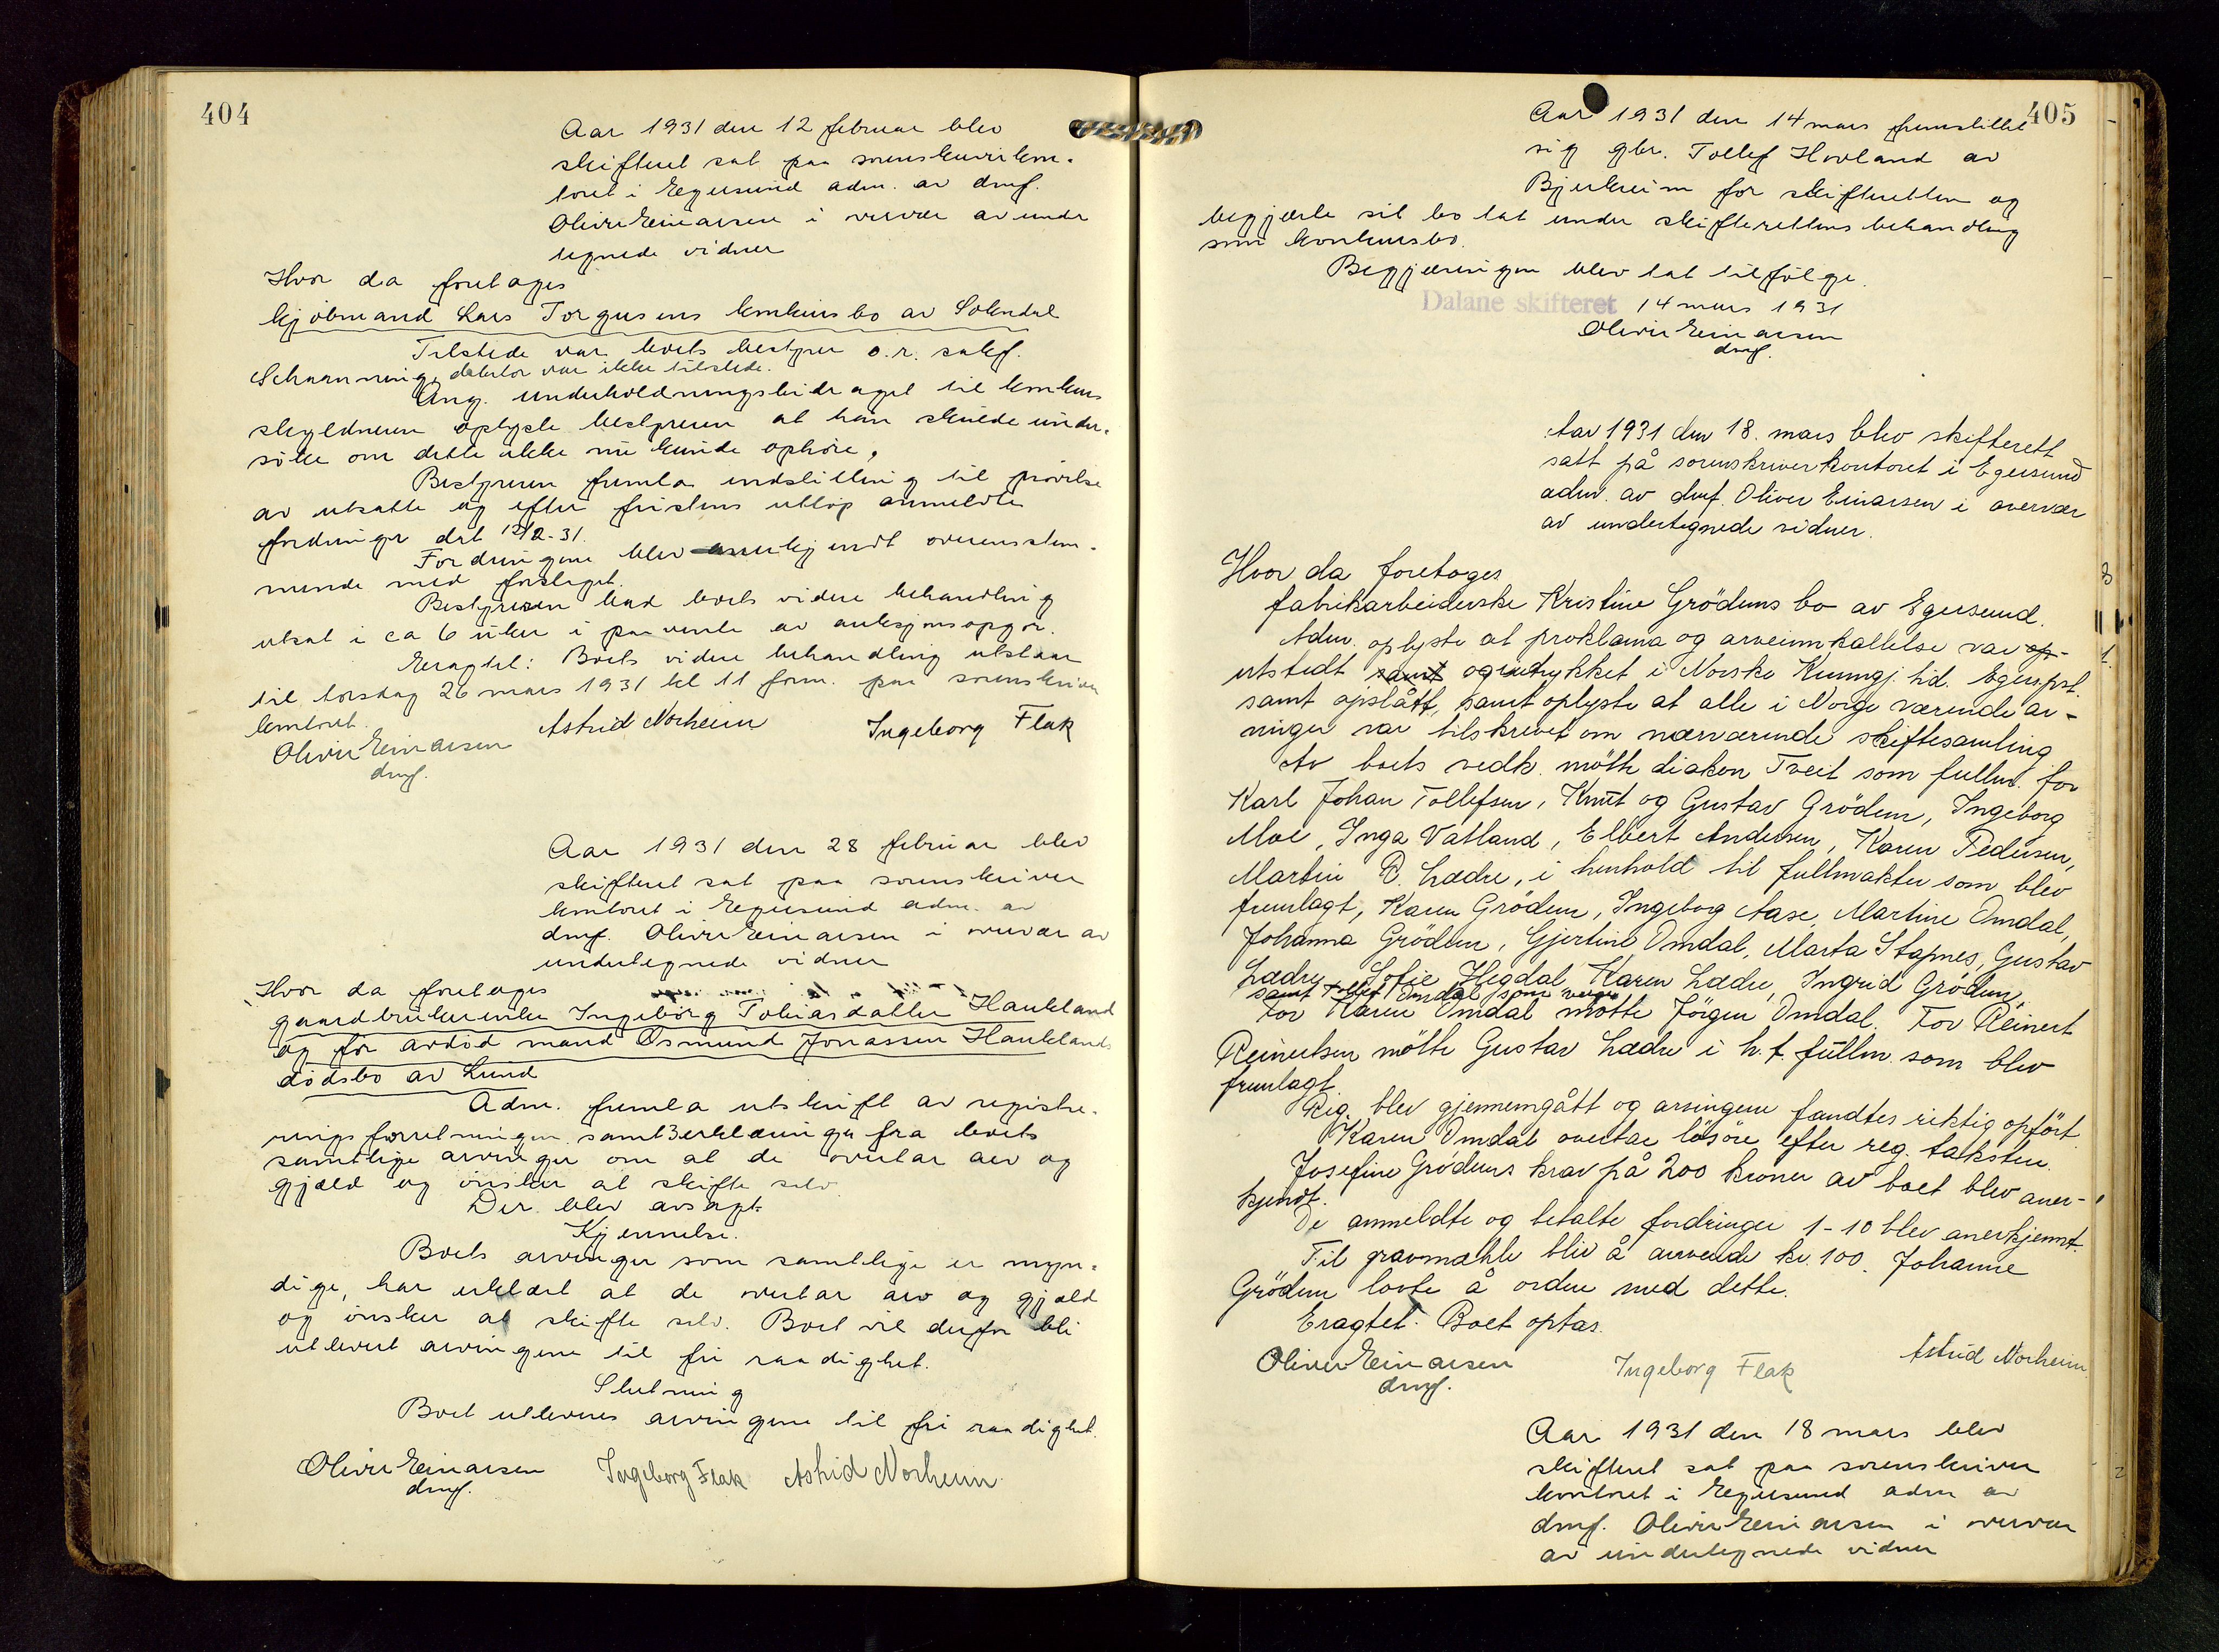 404
Aar 1931 den 12 februar blev
skifteret sat paa sorenskriverkon-
toret i Egersund adm. av dmf.
Oliver Einarsen i overvær av under
tegnede vidner
Hvor da foretages
kjöbmand Lars Torgersens konkursbo av Sokndal
Tilstede var boets bestyrer o.r. sakf.
Schanning, debitor var ikke tilstede.
Ang. underholdningsbidraget til konkurs
skyldneren oplyste bestyreren at han skulde under-
söke om dette ikke nu kunde ophöre,
Bestyreren fremla indstilling til prövelse
av utsatte og efter fristens utlöp anmeldte
fordringer dat 12/2-31.
Fordringene blev anerkjendt overensstem-
mende med forslaget.
Bestyreren bad boets videre behandling
utsat i ca 6 uker i paavente av auksjonsopgör.
Eragtet: Boets videre behandling utstaar
til torsdag 26 mars 1931 kl 11 form. paa sorenskriver
kontoret.
Oliver Einarsen Astrid Norheim Ingeborg Flak
dmf.
Aar 1931 den 28 februar blev
skifteret sat paa sorenskriver
kontoret i Egersund adm. av
dmf. Oliver Einarsen i overvær av
undertegnede vidner
Hvor da foretages
gaardbrukerenke Ingeborg Tobiasdatter Haukland
og för avdöd mand Osmund Jonassen Hauklands
dödsbo av Lund
Adm. fremla utskrift av registre-
ringsforretningen samt 3 erklæringer fra boets
samtlige arvinger om at de overtar arv og
gjæld og önsker at skifte selv.
Der blev avsagt
Kjennelse.
Boets arvinger som samtlige er myn-
dige, har erklært at de overtar arv og gjæld
og önsker at skifte selv. Boet vil derfor bli
utlevert arvingene til fri raadighet.
Slutning
Boet utleveres arvingene til fri raadighet.
Oliver Einarsen Ingeborg Flak Astrid Norheim
dmf.
405
Aar 1931 den 14 mars fremstillet
sig gbr. Tollef Hovland av
Bjerkreim for skifteretten og
begjærte sit bo tat under skifterettens behandling
som konkursbo.
Begjæringen blev tat tilfölge.
Dalane skifteret 14 mars 1931
Oliver Einarsen
dmf.
Aar 1931 den 18. mars blev skifterett
satt på sorenskriverkontoret i Egersund
adm. av dmf. Oliver Einarsen i overvær
av undertegnede vidner.
Hvor da foretages
fabrikarbeiderske Kristine Grödems bo av Egersund.
Adm. oplyste at proklama og arveinnkallelse var op-
utstedt samt og inntrykket i Norske Kunngj. tid. Egers.pst.
samt opslått, samt oplyste at alle i Norge værende ar-
vinger var tilskrevet om nærværende skiftesamling
Av boets vedk. mötte diakon Tveit som fullm. for
Karl Johan Tollefsen, Knut og Gustav Grödem, Ingeborg
Moe, Inga Vatland, Elbert Andersen, Karen Pedersen,
Martin B. Lædre, i henhold til fullmakter som blev
fremlagt, Karen Grödem, Ingeborg Aase, Martine Omdal,
Johanna Grödem, Gjertine Omdal, Marta Stapnes, Gustav
Lædre, Sofie Hegdal, Karen Lædre, Ingrid Grödem,
samt Tollef Omdal som verge
For Karen Omdal mötte Jörgen Omdal. For Reinert
Reinertsen mötte Gustav Lædre i h.t. fullm. som blev
fremlagt.
Reg. blev gjennemgått og arvingene fandtes riktig opfört.
Karen Omdal overtar lösöre efter reg. taksten.
Josefine Grödems krav på 200 kroner av boet blev aner-
kjendt.
De anmeldte og betalte fordringer 1-10 blev anerkjennt.
Til gravmæhle blir å anvende kr. 100. Johanne
Grödem lovte å ordne med dette.
Eragtet: Boet optas.
Oliver Einarsen Ingeborg Flak Astrid Norheim
dmf.
Aar 1931 den 18 mars blev
skifteret sat paa sorenskriver
kontoret i Egersund adm av
dmf. Oliver Einarsen i overvær
av undertegnede vidner